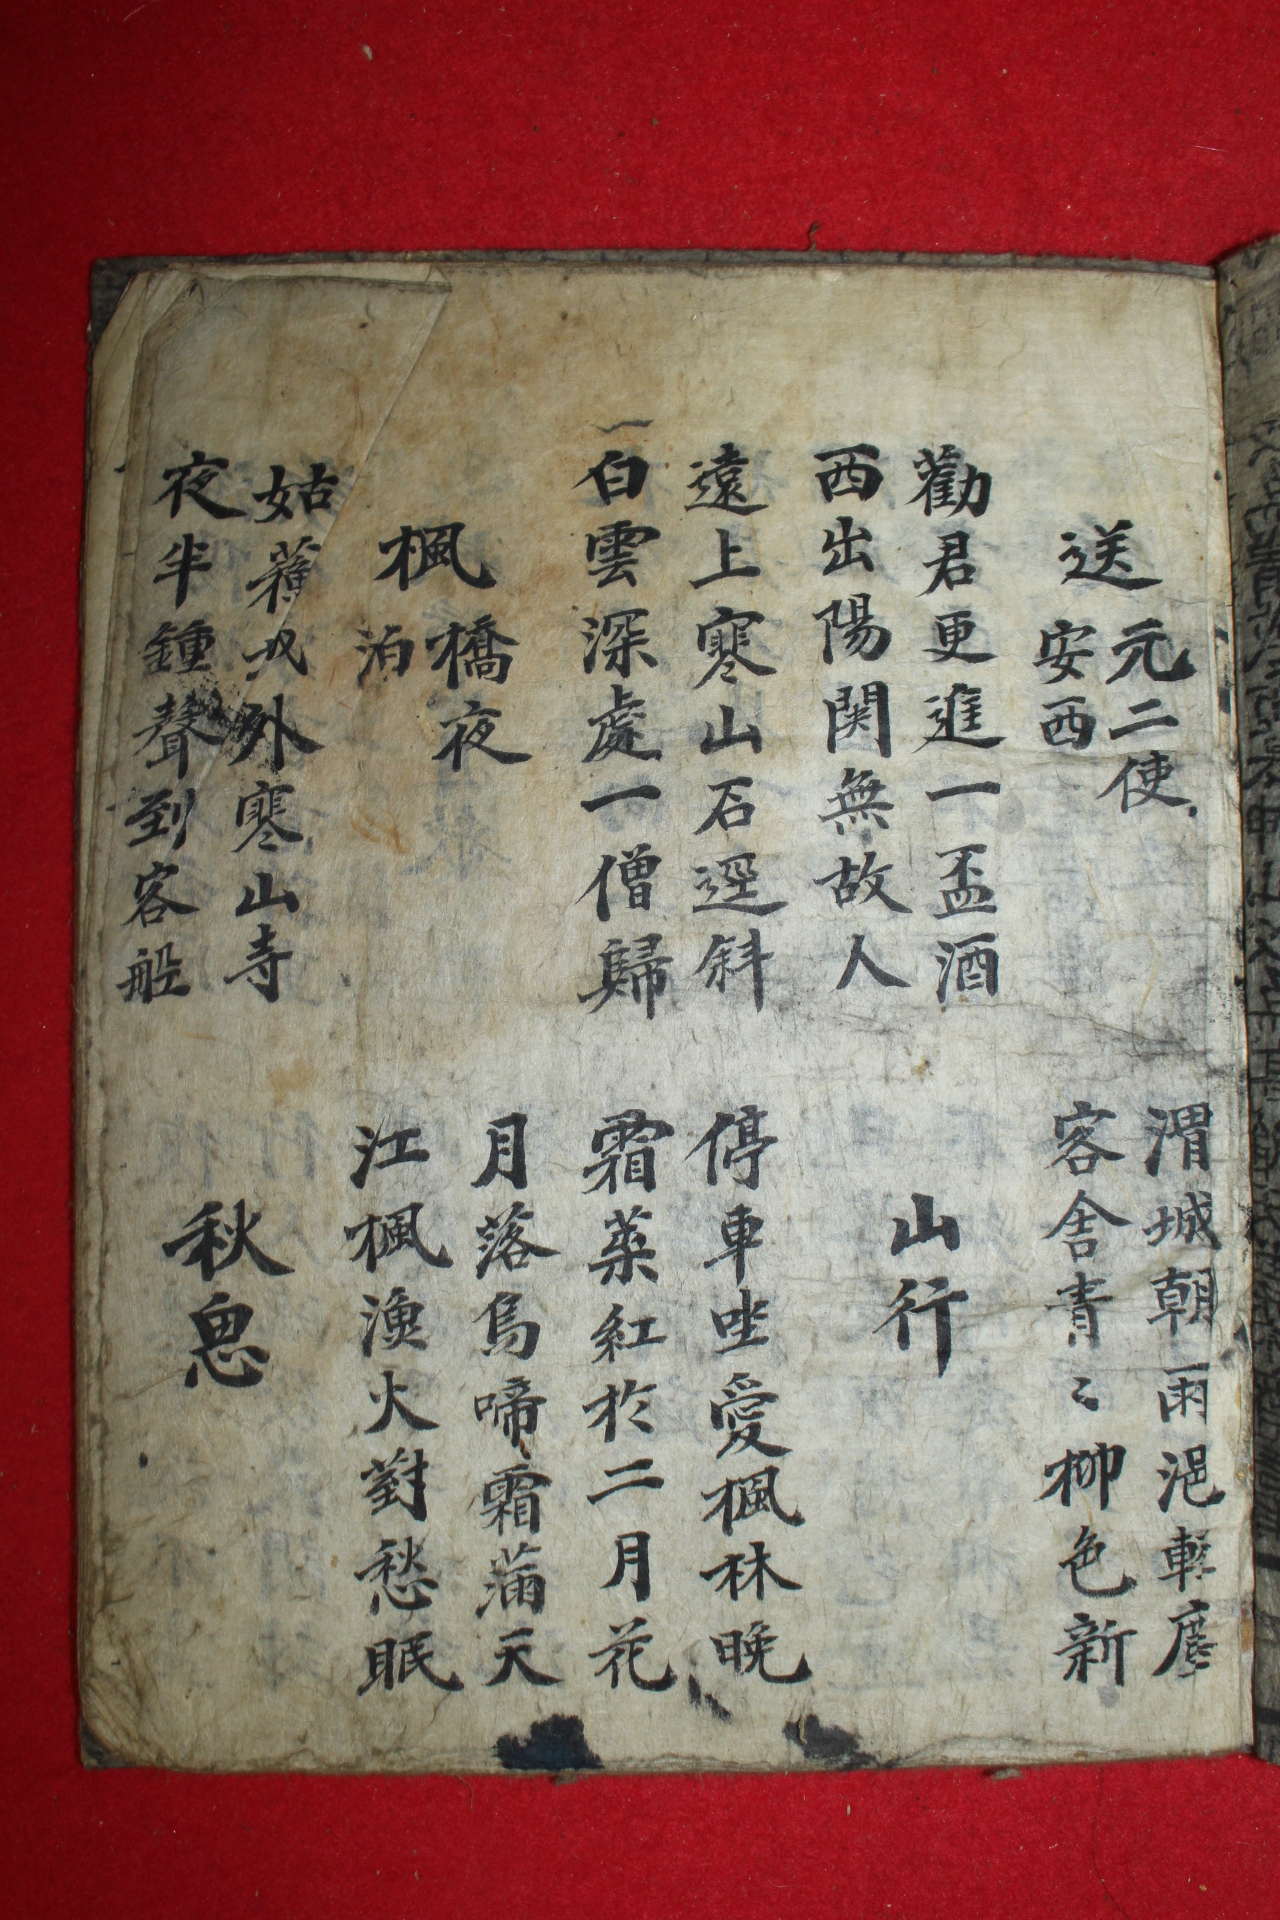 送元二使
安西
渭城朝雨浥輕塵
客舍青〻柳色新
勸君更進一盃酒
西出陽関無故人
山行
遠上寒山石逕斜
白雲深處一僧歸
停車唑愛楓林晚
霜葉紅於二月花
楓橋夜
泊
月落烏啼霜蒲天
江楓漁火對愁眠
姑外寒山寺
夜半鍾聲到客船
秋思